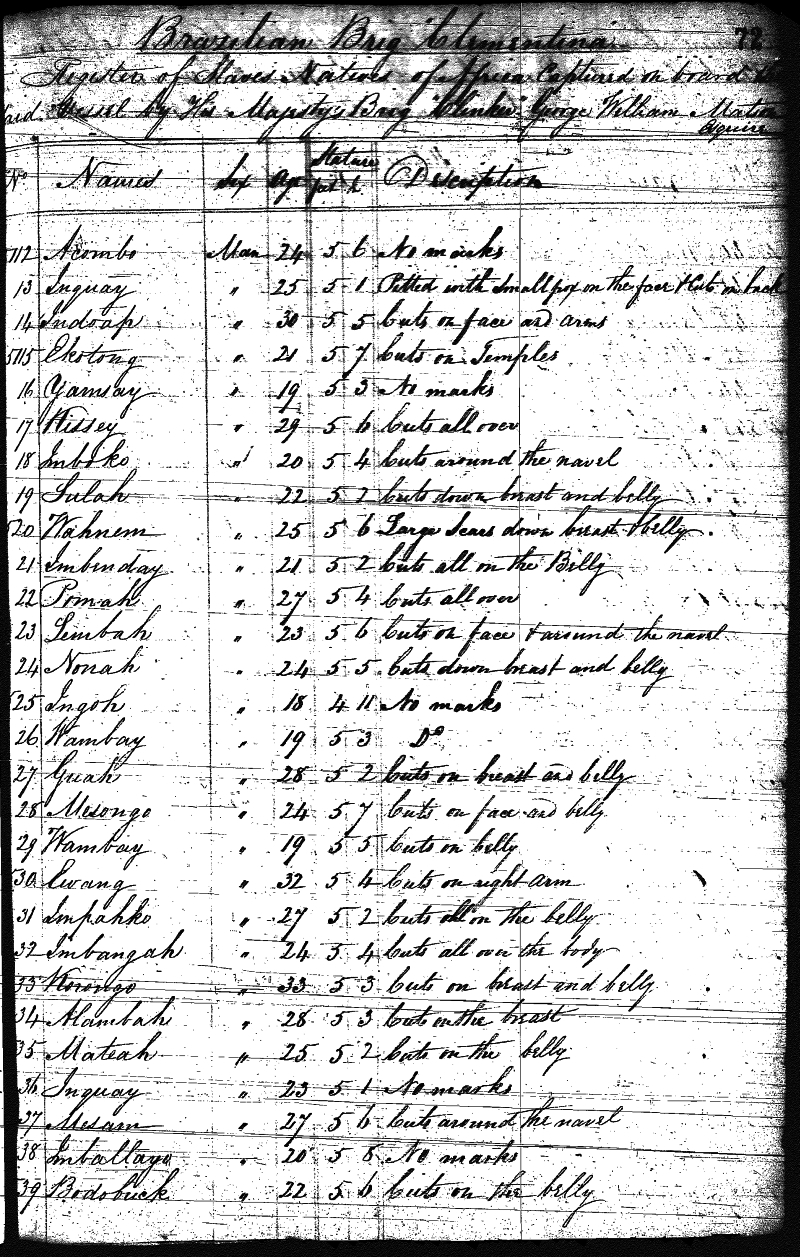 Brazilian Brig Clementina 72
Register of Slaves Natives of Africa Captured on board the
said Vessel by His Majesty's Brig "Clinker" George William Matson
Esquire
No Names Sex Age Stature Description
5112 Acombo Man 24 5 6 No marks
13 Inguay " 25 5 1 Pitted with Small pox on the face & Cuts on back
14 Indoap " 30 5 5 Cuts on face and arms
5115 Ekotong " 21 5 7 Cuts on Temples
16 Yamsay " 19 5 3 No marks
17 Kissey " 29 5 6 Cuts all over
18 Imboko " 20 5 4 Cuts around the navel
19 Sulah " 22 5 2 Cuts down breast and belly
520 Wahnem " 25 5 6 Large Scars down breast & belly
21 Imbenday " 21 5 2 Cuts all on the Belly
22 Pomah " 27 5 4 Cuts all over
23 Lembah " 23 5 6 Cuts on face & around the navel
24 Nonah " 24 5 5 Cuts down breast and belly
525 Ingoh " 18 4 11 No marks
26 Wambay " 19 5 3 Do
27 Guah " 28 5 2 Cuts on breast and belly
28 Mesongo " 24 5 7 Cuts on face and belly
29 Wambay " 19 5 5 Cuts on belly
530 Ewang " 32 5 4 Cuts on right arm
31 Impahko " 27 5 2 Cuts all on the belly
32 Imbangah " 24 5 4 Cuts all over the body
33 Korongo " 33 5 3 Cuts on breast and belly
34 Alambah " 28 5 3 Cuts on the breast
35 Mateah " 25 5 2 Cuts on the belly
36 Inguay " 23 5 1 No marks
37 Mesam " 27 5 6 Cuts around the navel
38 Imballayo " 20 5 8 No marks
39 Bodobuck " 22 5 6 Cuts on the belly